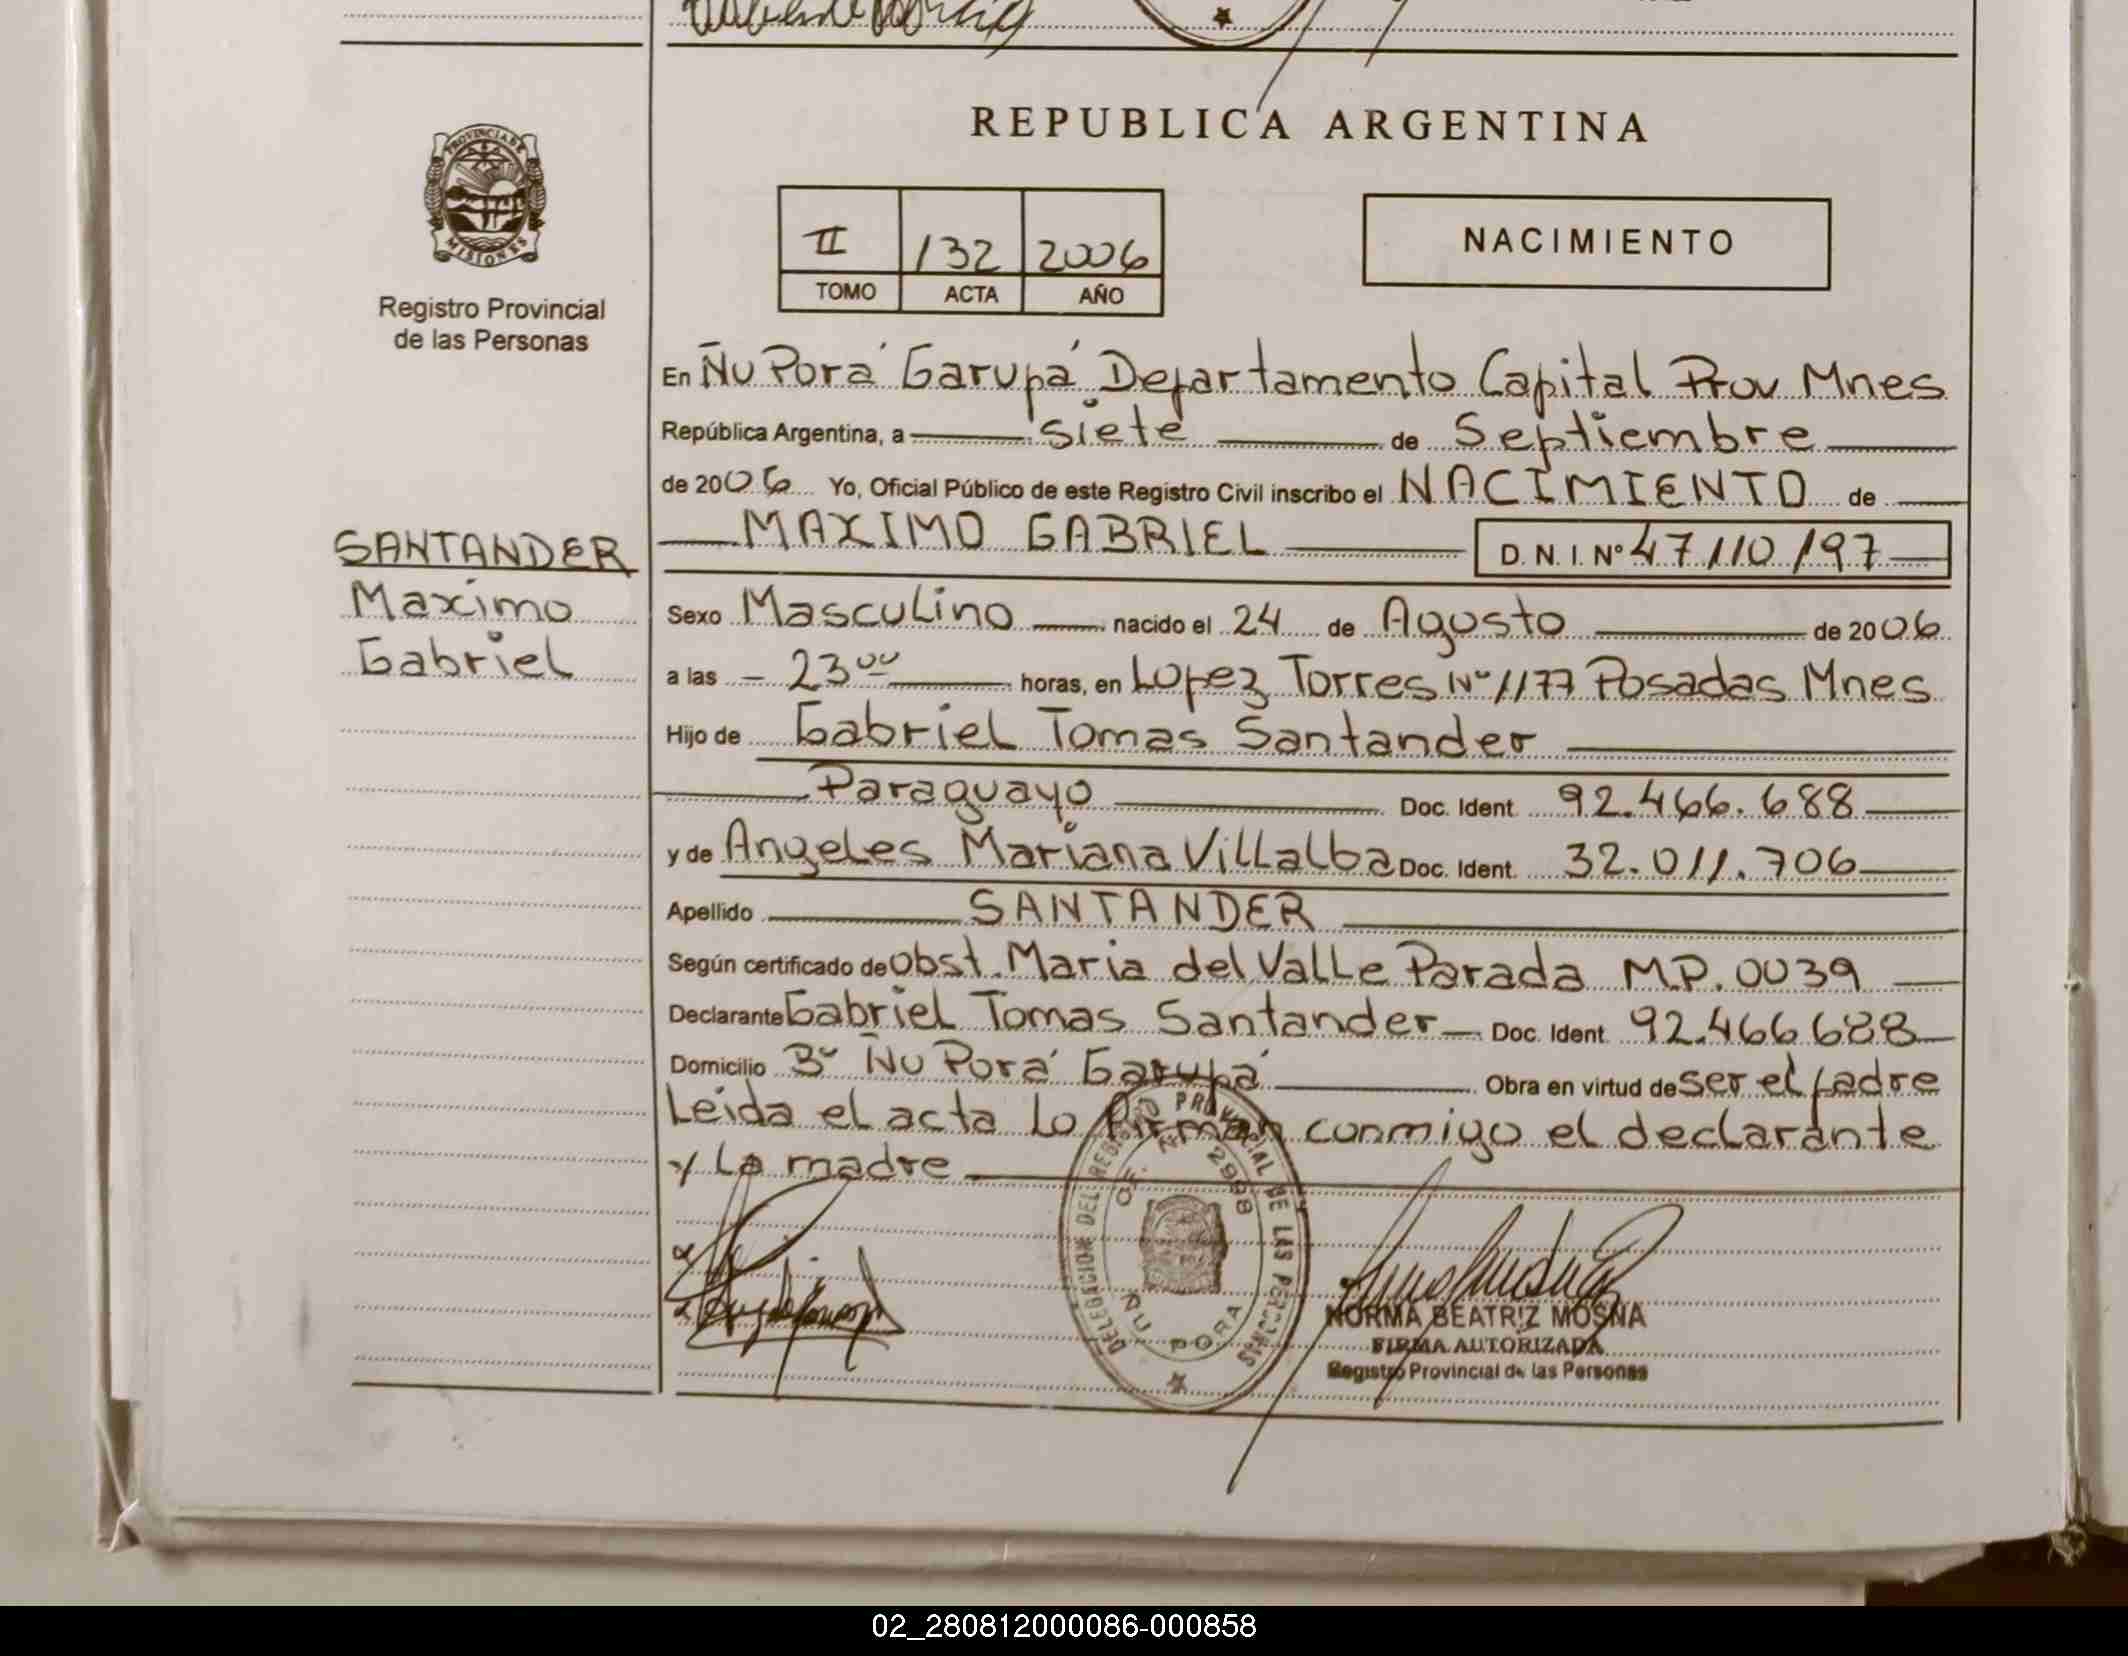 REPUBLICA ARGENTINA
PROVINCIA DE
MISIONES
Registro Provincial
de las Personas
II 132 2006
TOMO ACTA AÑO
NACIMIENTO
En Ñu Porá Garupá Departamento Capital Prov Mnes
República Argentina, a siete de Septiembre
de 2006 Yo, Oficial Público de este Registro Civil inscribo el NACIMIENTO de
MAXIMO GABRIEL D. N. I. Nº 47110197
SANTANDER
Maximo
Gabriel
Sexo Masculino nacido el 24 de Agosto de 2006
a las 23 00 horas, en Lopez Torres Nº 1177 Posadas Mnes
Hijo de Gabriel Tomas Santander
Paraguayo Doc. Ident. 92.466.688
y de Angeles Mariana Villalba Doc. Ident. 32.011.706
Apellido SANTANDER
Según certificado de Obst. Maria del Valle Parada MP. 0039
Declarante Gabriel Tomas Santander Doc. Ident. 92.466688
Domicilio Bº Ñu Porá Garupá Obra en virtud de ser el padre
Leida el acta lo firman conmigo el declarante
y la madre
DELEGACION DEL REGISTRO PROVINCIAL DE LAS PERSONAS
OF. Nº 2998
ÑU PORA
NORMA BEATRIZ MOSNA
FIRMA AUTORIZADA
Registro Provincial de las Personas
02_280812000086-000858